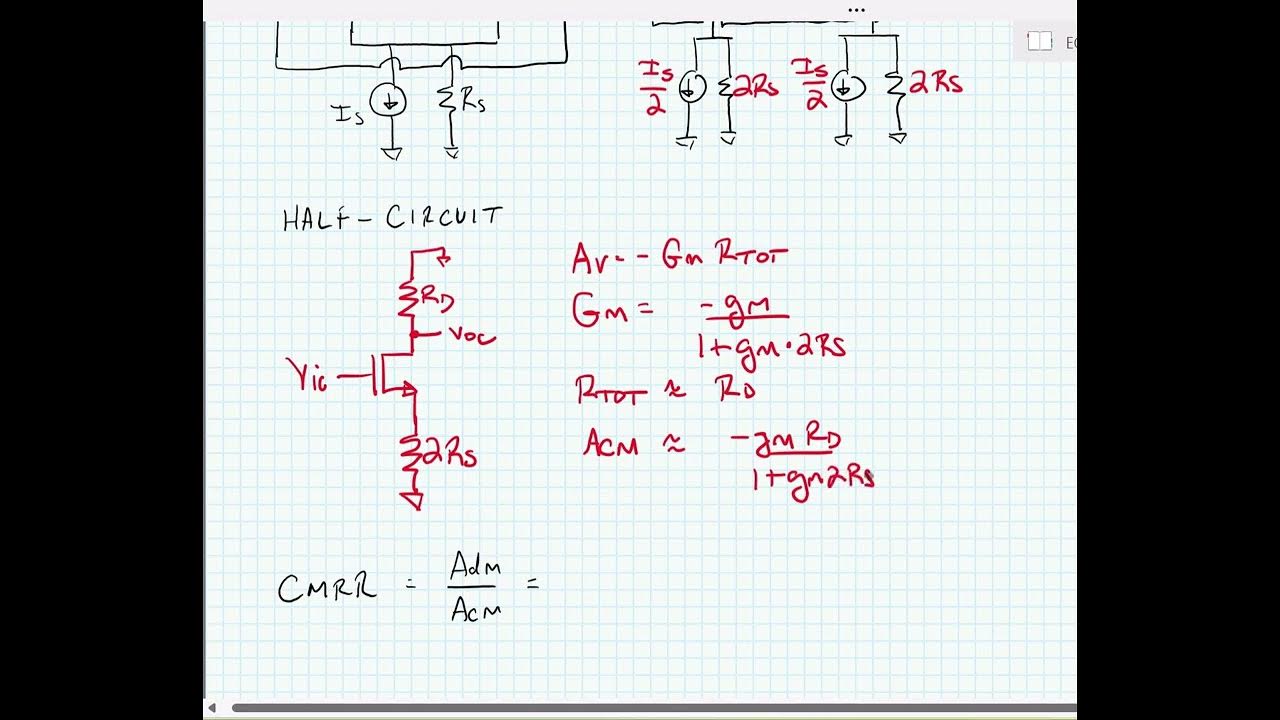 ...
EC
Is Rs
Is/2 2Rs Is/2 2Rs
HALF-CIRCUIT
RD
voc
Vic
2Rs
Av = - Gm RTOT
Gm = -gm / 1+gm·2Rs
RTOT ≈ RD
ACM ≈ -gm RD / 1+gm2Rs
CMRR = Adm / Acm =